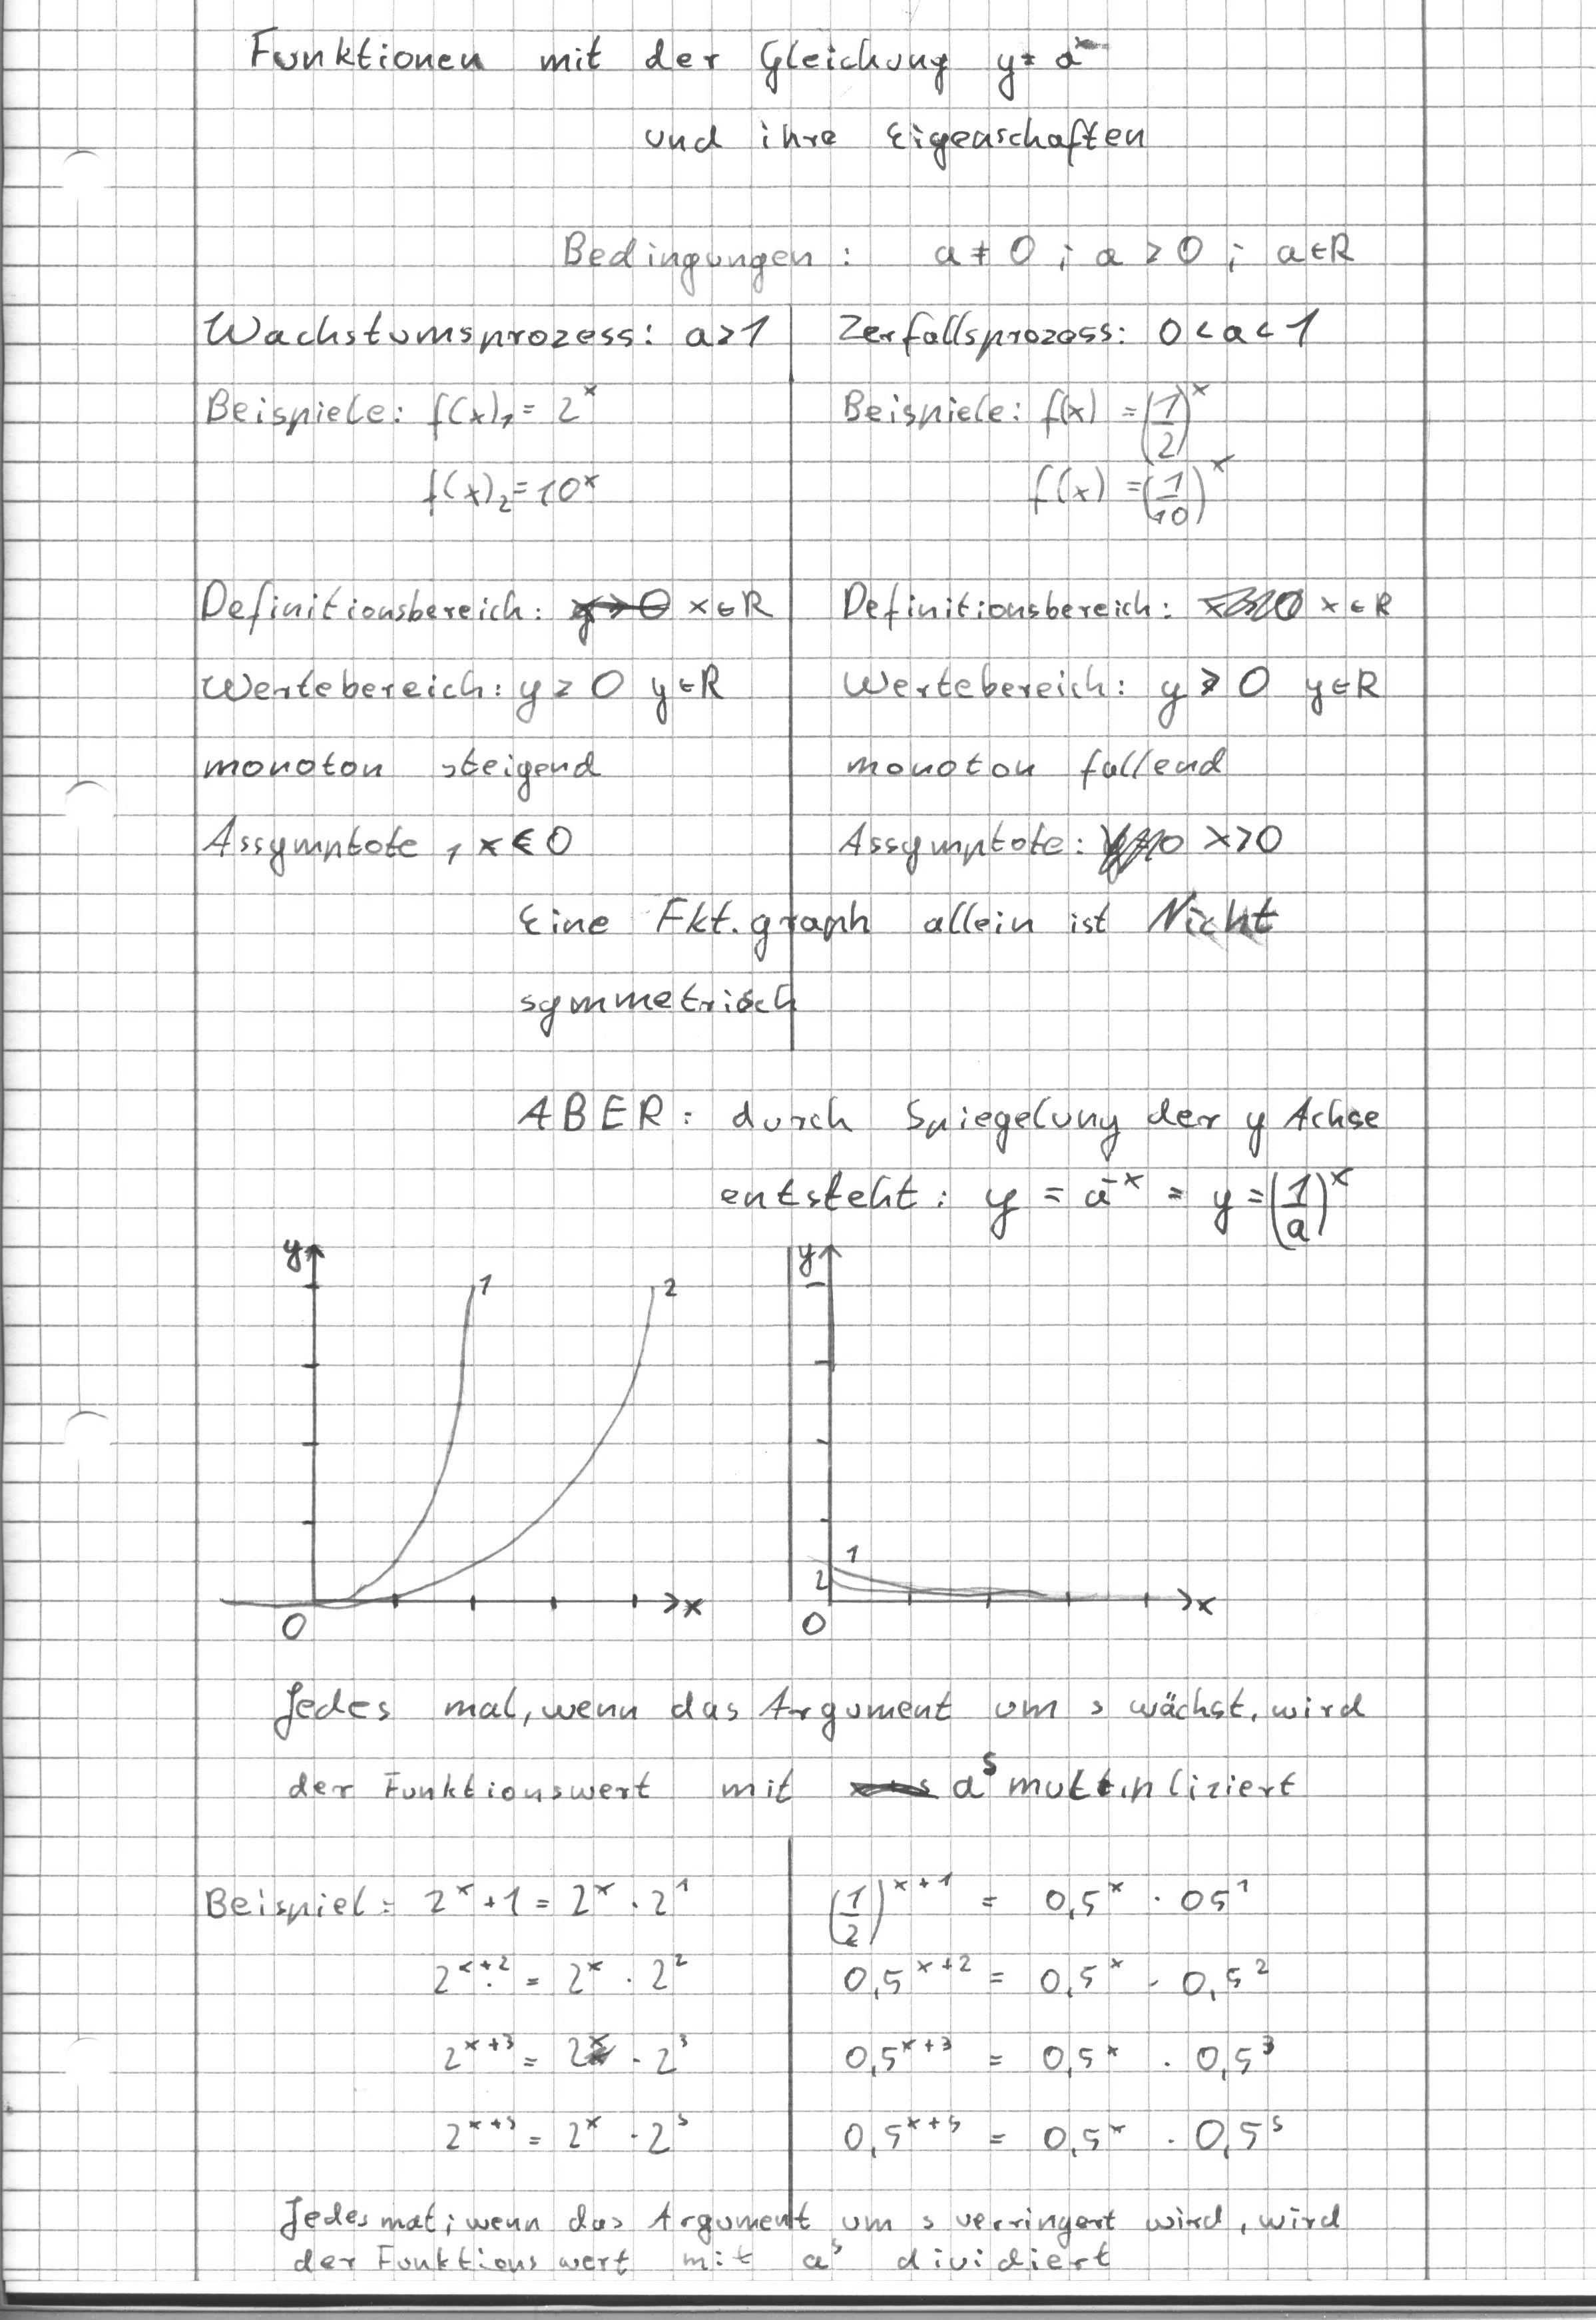 Funktionen mit der Gleichung y = aˣ
und ihre Eigenschaften
Bedingungen : a ≠ 0 ; a > 0 ; a∈R
Wachstumsprozess: a>1
Beispiele: f(x)₁ = 2ˣ
f(x)₂ = 10ˣ
Definitionsbereich: x∈R
Wertebereich: y > 0 y∈R
monoton steigend
Assymptote , x < 0
Zerfallsprozess: 0 < a < 1
Beispiele: f(x) = (1/2)ˣ
f(x) = (1/10)ˣ
Definitionsbereich: x ∈ R
Wertebereich: y > 0 y∈R
monoton fallend
Assymptote: x>0
Eine Fkt.graph allein ist Nicht
symmetrisch
ABER: durch Spiegelung der y Achse
entsteht: y = a⁻ˣ = y = (1/a)ˣ
y 1 2
0 x
y
1
2
0 x
Jedes mal, wenn das Argument um s wächst, wird
der Funktionswert mit aˢ multipliziert
Beispiel: 2ˣ + 1 = 2ˣ · 2¹
2ˣ⁺² = 2ˣ · 2²
2ˣ⁺³ = 2ˣ · 2³
2ˣ⁺ˢ = 2ˣ · 2ˢ
(1/2)ˣ⁺¹ = 0,5ˣ · 05¹
0,5ˣ⁺² = 0,5ˣ · 0,5²
0,5ˣ⁺³ = 0,5ˣ · 0,5³
0,5ˣ⁺ˢ = 0,5ˣ · 0,5ˢ
Jedesmal; wenn das Argument um s verringert wird, wird
der Funktionswert mit aˢ dividiert